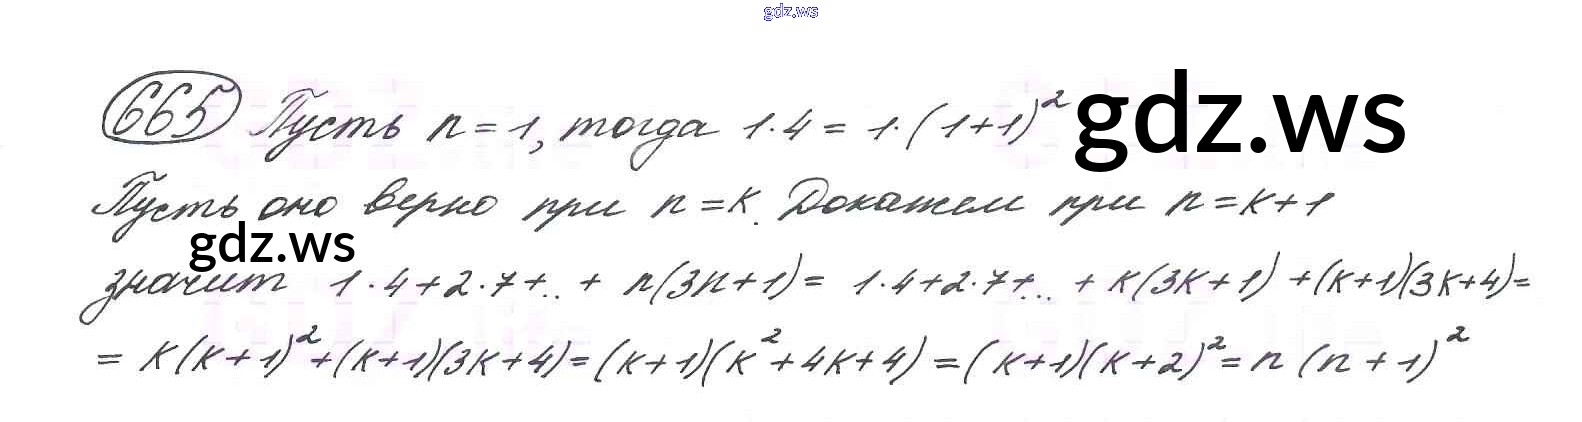 gdz.ws
665 Пусть n = 1, тогда 1·4 = 1·(1+1)² gdz.ws
Пусть оно верно при n = k. Докажем при n = k+1
gdz.ws
значит 1·4+2·7+.. + n(3n+1) = 1·4+2·7+... + k(3k+1) + (k+1)(3k+4) =
= k(k+1)² + (k+1)(3k+4) = (k+1)(k²+4k+4) = (k+1)(k+2)² = n(n+1)²